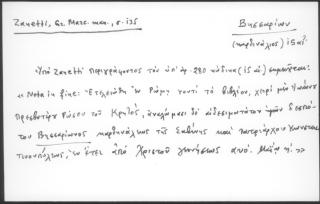 Zanetti, Gr. Marc. man., σ. 135
Βησσαρίων
(καρδινάλιος) 15 αἰ.
Ὑπὸ Zanetti περιγράφοντος τὸν ὑπ' ἀρ. 280 κώδικα (15 αἰ.) σημειοῦται:
« Nota in fine: Ἐτελειώθη ἐν Ῥώμῃ τουτὶ τὸ βιβλίον, χειρὶ μὲν Ἰωάννου
πρεσβυτέρου Ῥώσου τοῦ Κρητός, ἀναλώμασι δὲ αἰδεσιμωτάτου ἡμῶν δεσπό-
του Βησσαρίωνος καρδηνάλεως τῆς Σαβίνης καὶ πατριάρχου Κωνσταν
τινουπόλεως, ἐν ἔτει ἀπὸ Χριστοῦ γεννήσεως